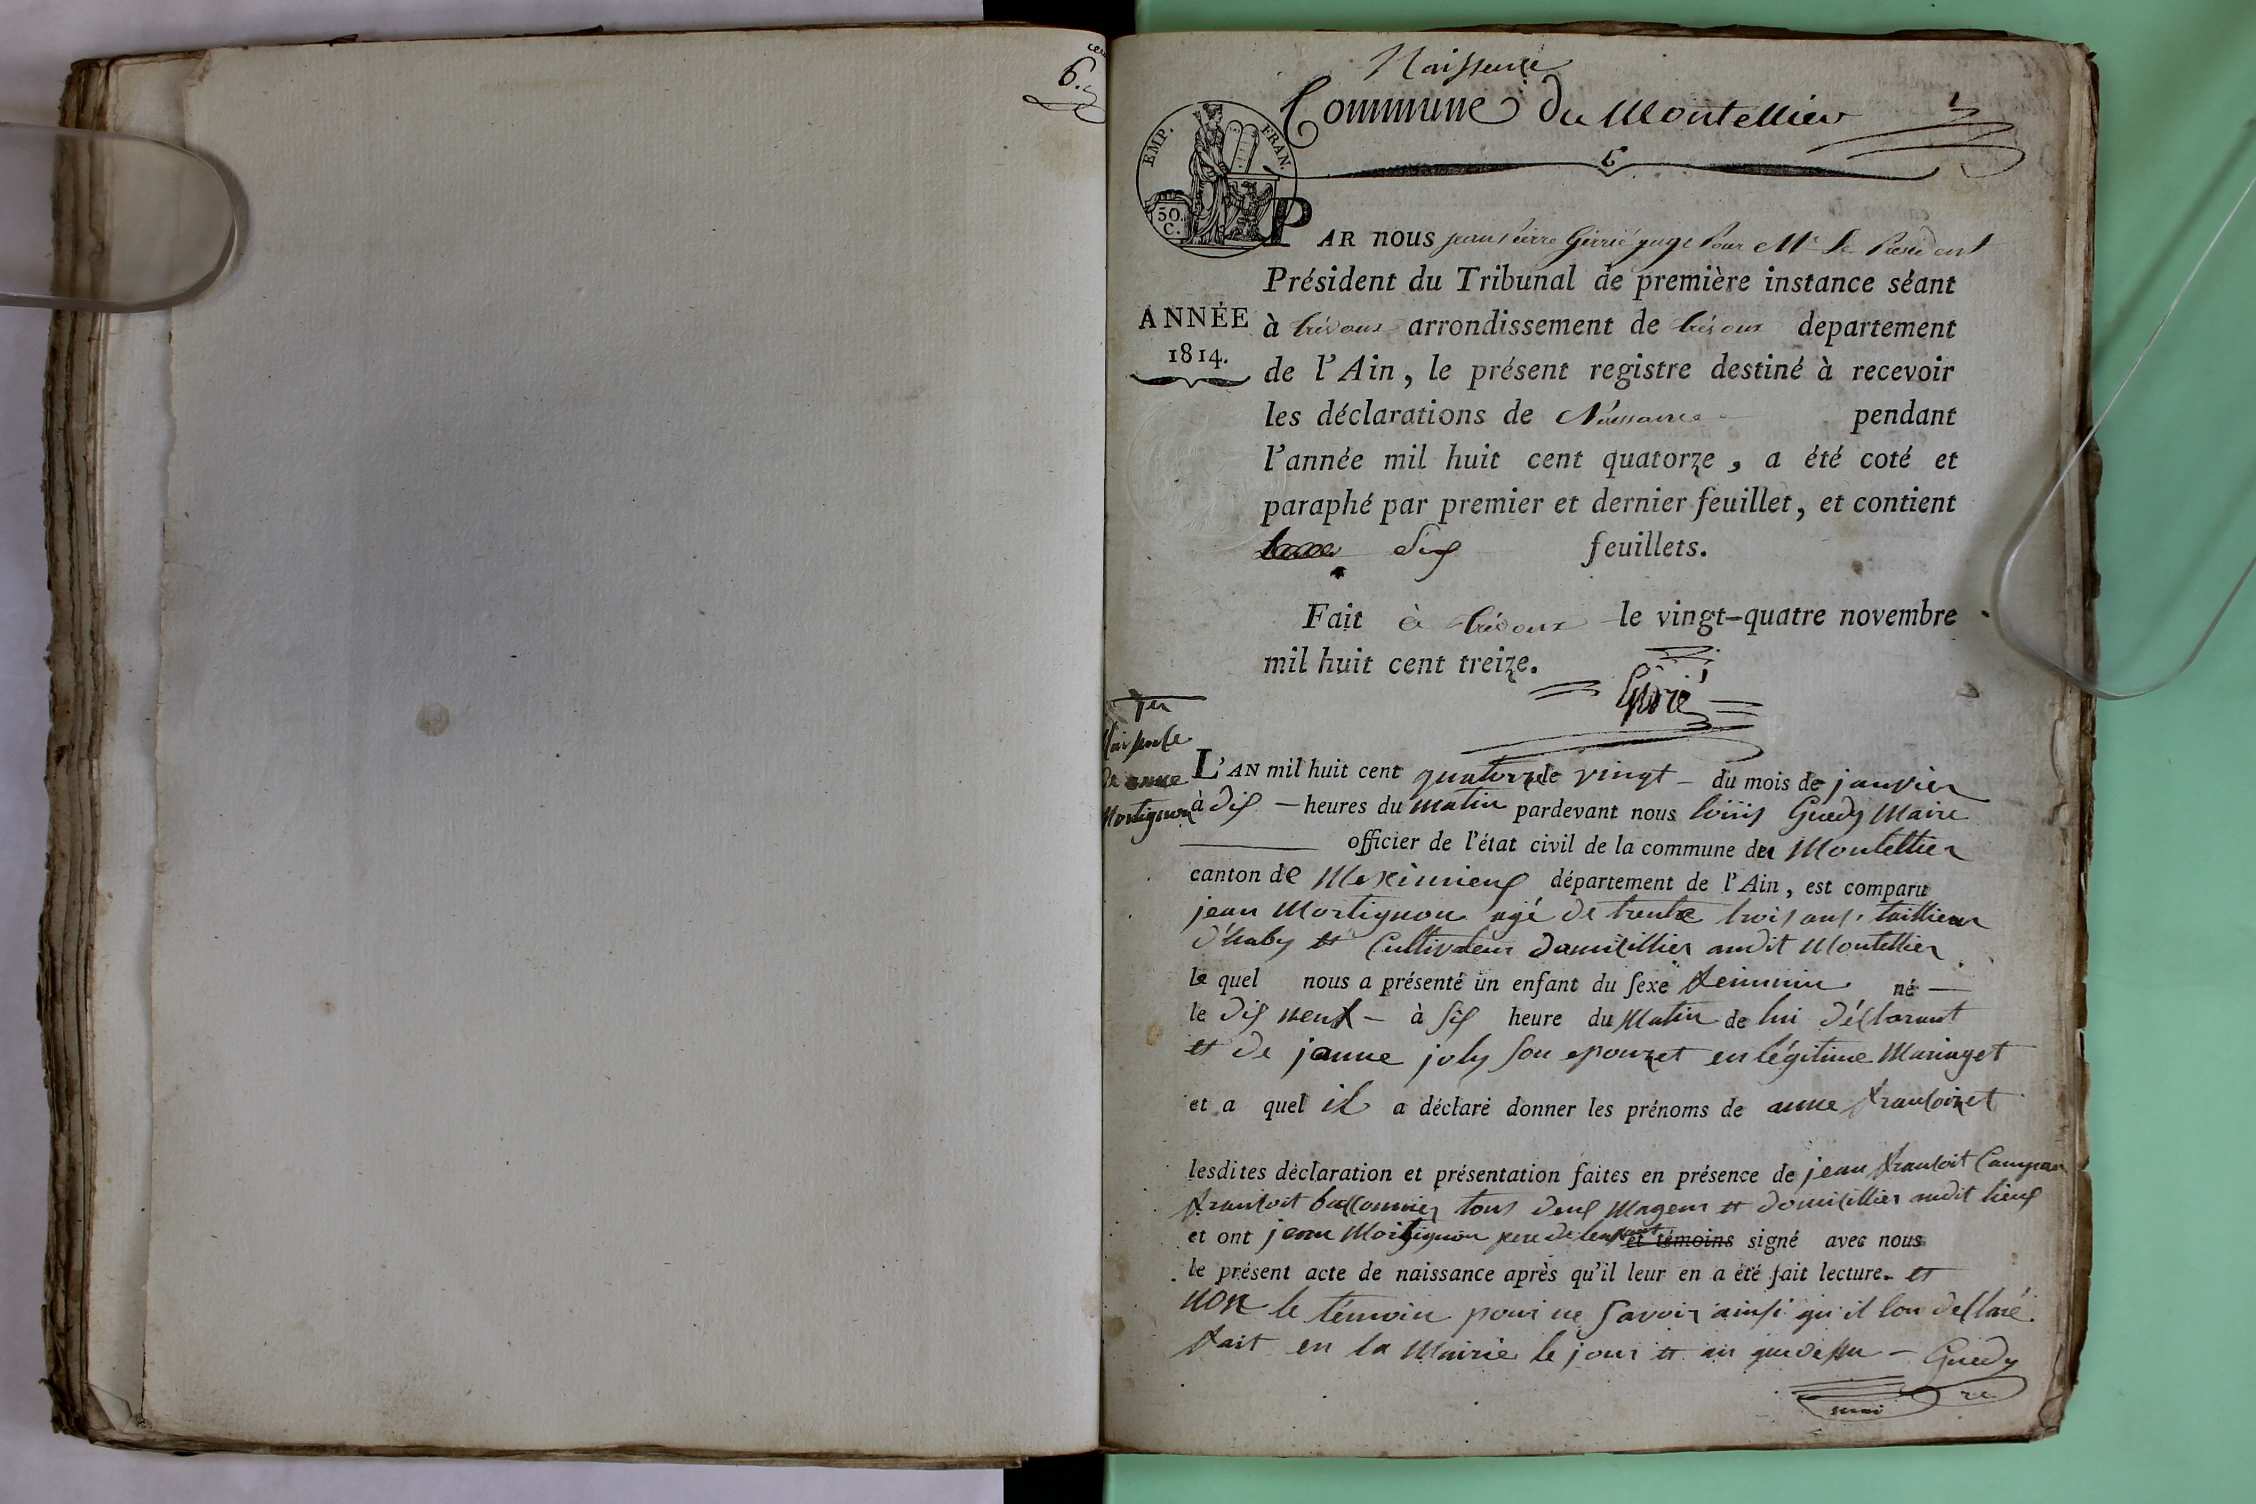 6.
Naissence
Commune du Montellier
EMP. FRAN.
30.
C.
PAR nous jean pierre Girrié juge Pour Mr Le President
Président du Tribunal de première instance séant
ANNÉE
1814.
à trévoux arrondissement de trévoux departement
de l'Ain, le présent registre destiné à recevoir
les déclarations de Naissance pendant
l'année mil huit cent quatorze, a été coté et
paraphé par premier et dernier feuillet, et contient
Six feuillets.
Fait à trévoux le vingt-quatre novembre
mil huit cent treize.
Girrié
1er
Naissence
De anne
Mortignon
L'AN mil huit cent quatorze le vingt - du mois de janvier
à dix - heures du matin pardevant nous loüis Guedy Maire
officier de l'état civil de la commune du Montellier
canton de Meximieux département de l'Ain, est comparu
jean Mortignon agé de trente trois ans, taillieur
d'haby et Cultivateur domicillier audit Montellier
le quel nous a présenté un enfant du sexe feminin né -
le dix neuf - à six heure du Matin de lui déclarant
et de jeanne joly son epouzet en légitime Mariaget
et a quel il a déclaré donner les prénoms de anne francoizet
lesdites déclaration et présentation faites en présence de jean francoit
francoit tous deux Mageur et domicillier audit lieux
et ont jean Mortignon pere de lenfant et témoins signé avec nous
le présent acte de naissance après qu'il leur en a été fait lecture. et
non le témoin pour ne Savoir ainsi qu'il lon desclaré
fait en la Mairie le jour et an que dessu - Guedy
mai re